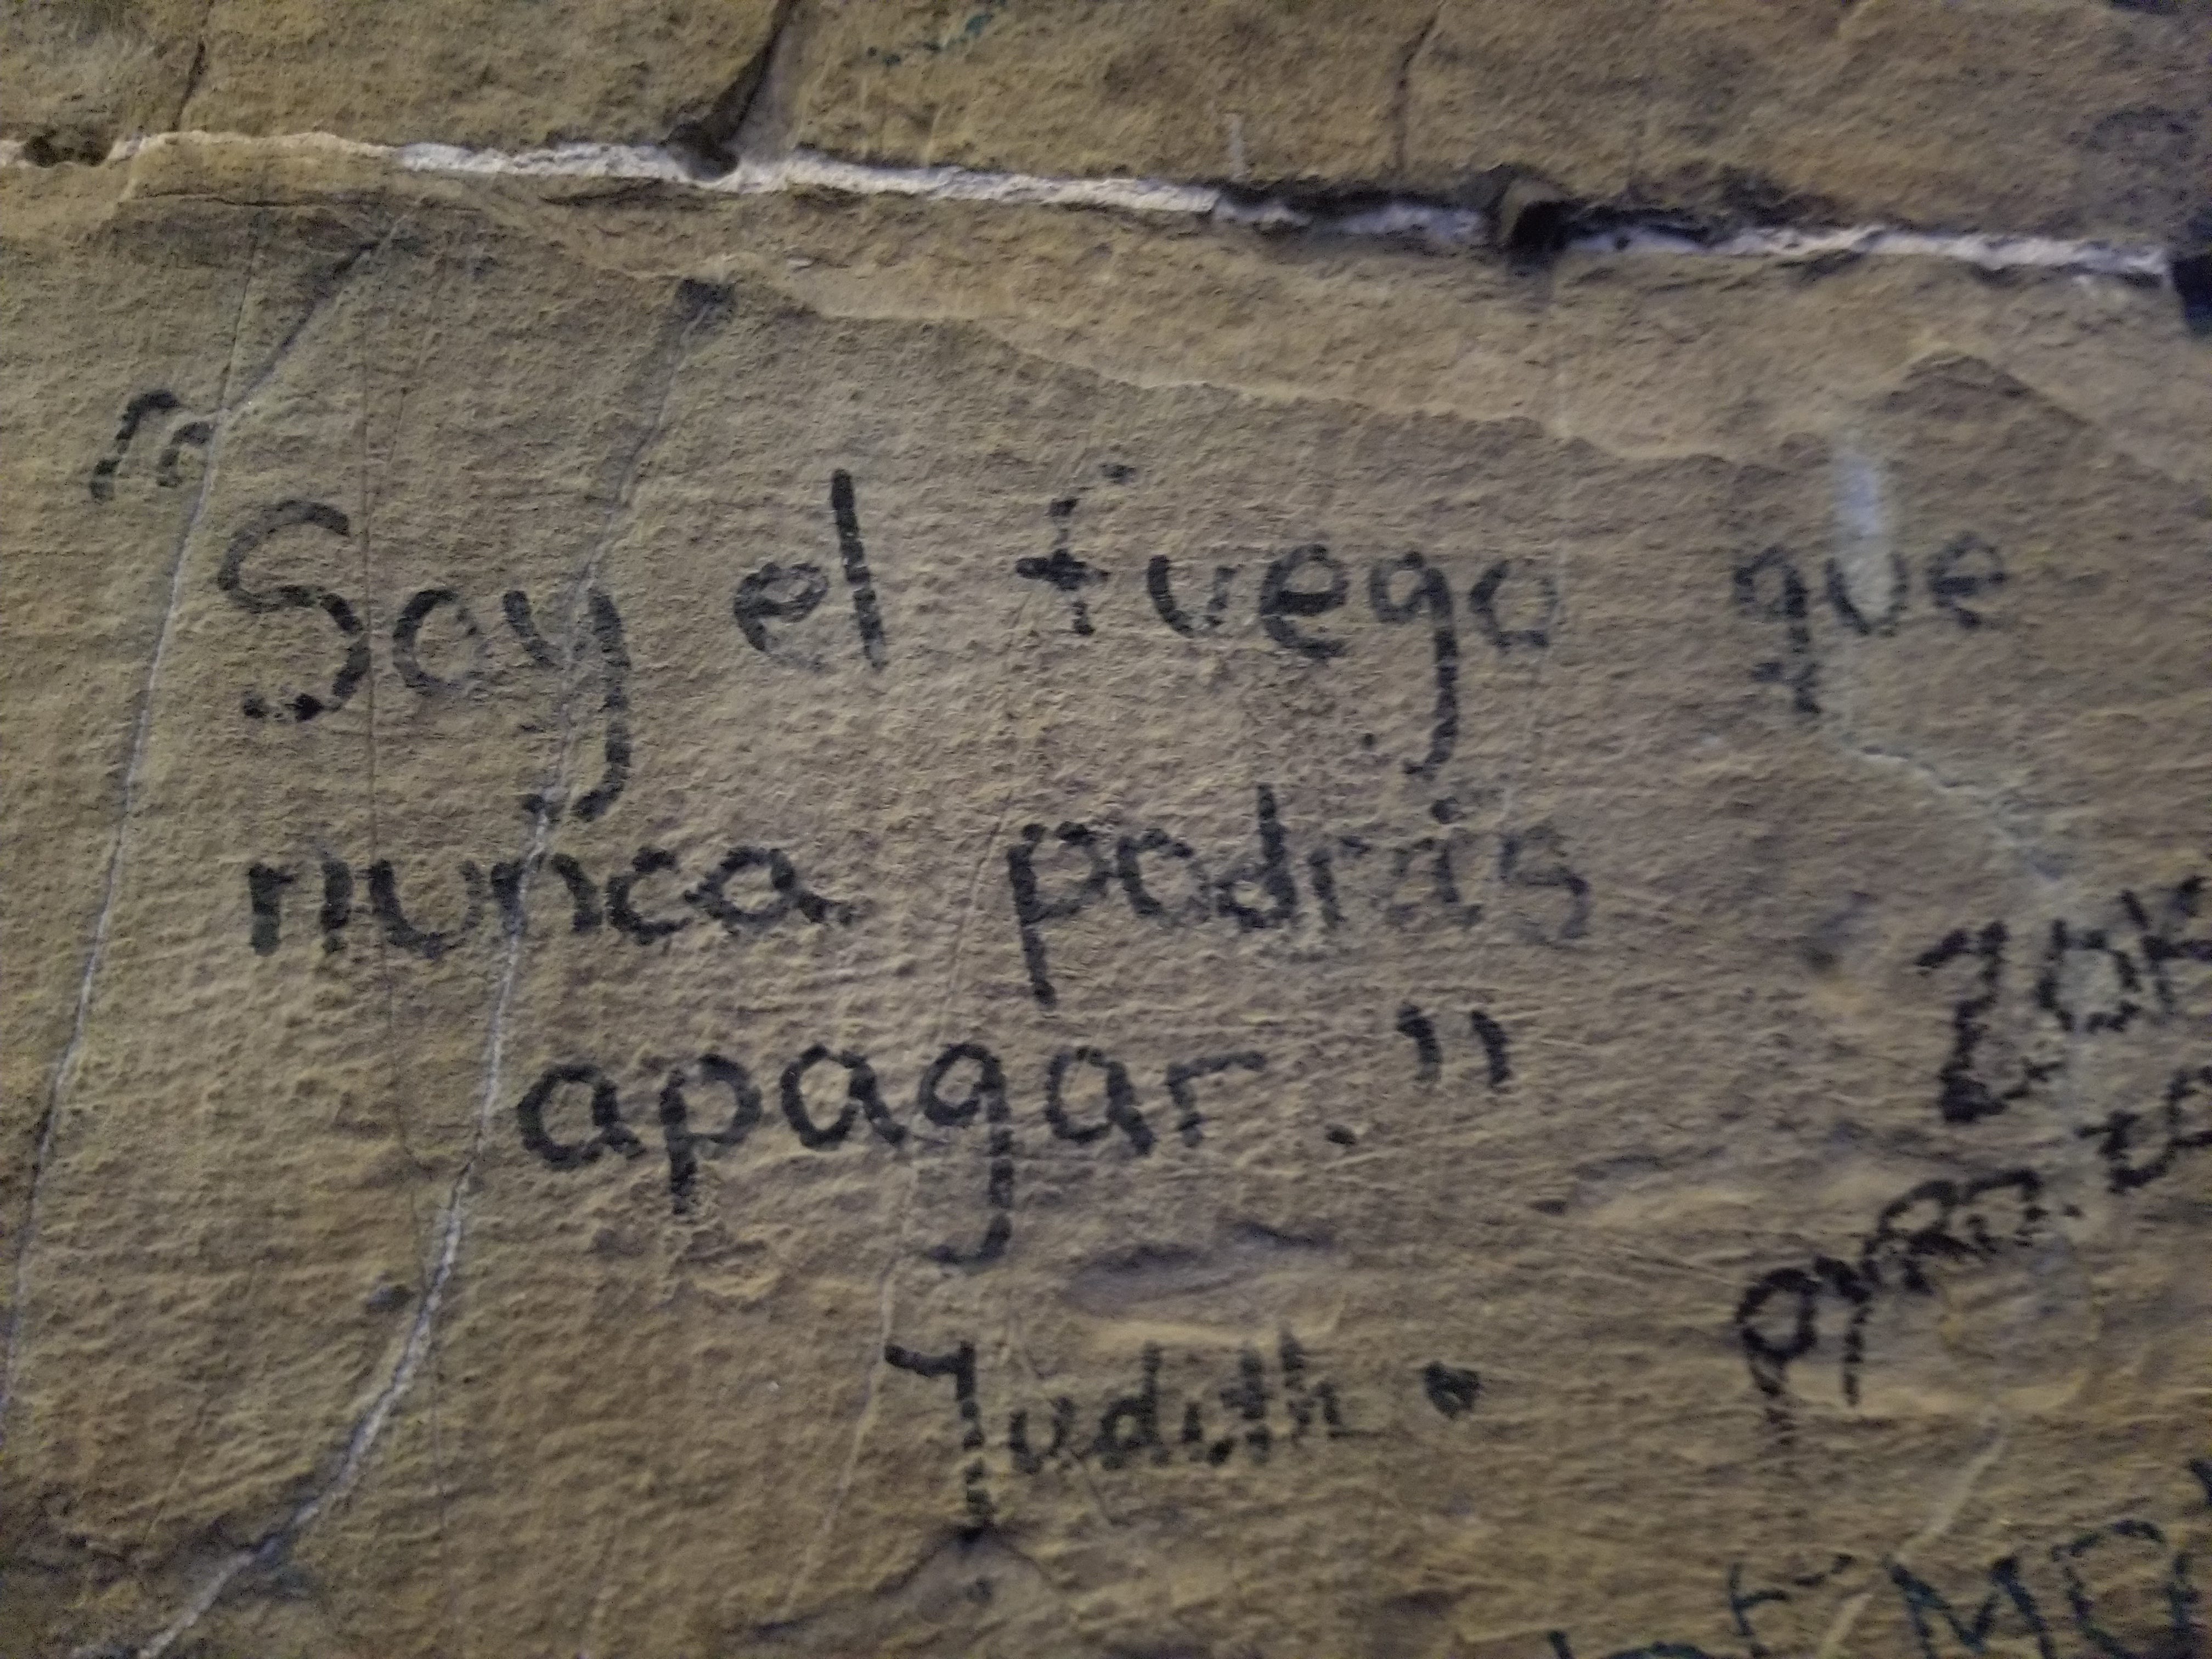 "Soy el fuego que
nunca podrás
apagar."
Judith